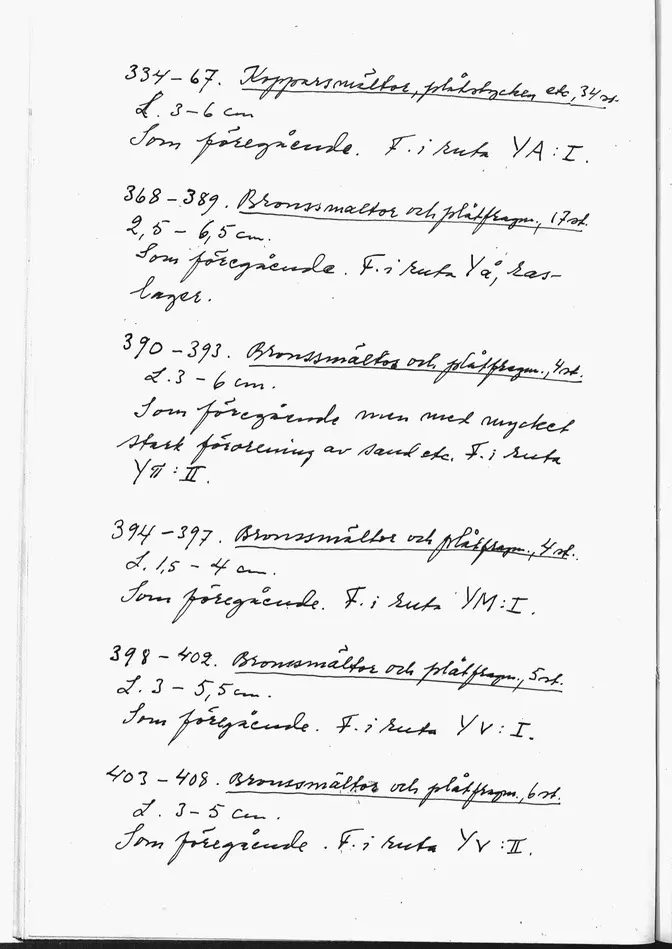 334-67. Kopparsmältor, plåtstycken etc, 34 st.
L. 3-6 cm
Som föregående. F. i ruta YA:I.
368-389. Bronssmältor och plåtfragm., 17 st.
2,5 - 6,5 cm.
Som föregående. F. i ruta Yå, ras-
lager.
390-393. Bronssmältor och plåtfragm., 4 st.
L. 3 - 6 cm.
Som föregående men med mycket
stark förorening av sand etc. F. i ruta
Yπ:II.
394-397. Bronssmältor och plåtfragm., 4 st.
L. 1,5 - 4 cm.
Som föregående. F. i ruta YM:I.
398-402. Bronssmältor och plåtfragm., 5 st.
L. 3 - 5,5 cm.
Som föregående. F. i ruta YV:I.
403-408. Bronssmältor och plåtfragm., 6 st.
L. 3-5 cm.
Som föregående. F. i ruta YV:II.